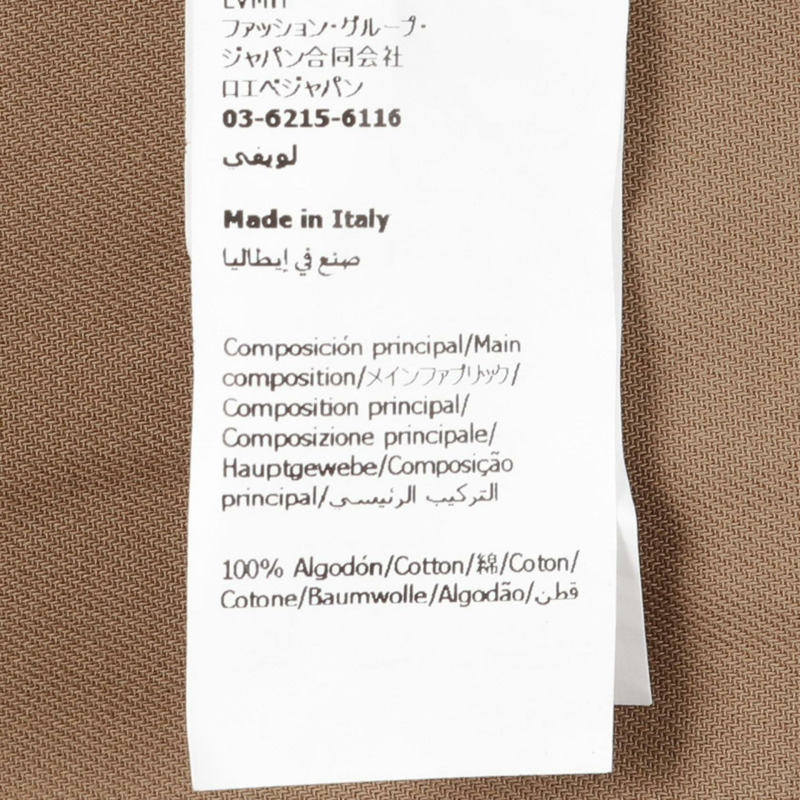 LVMH
ファッション・グループ・
ジャパン合同会社
ロエベジャパン
03-6215-6116
لويفي
Made in Italy
صنع في إيطاليا
Composición principal/Main
composition/メインファブリック/
Composition principal/
Composizione principale/
Hauptgewebe/Composição
principal/التركيب الرئيسي
100% Algodón/Cotton/綿/Coton/
Cotone/Baumwolle/Algodão/قطن